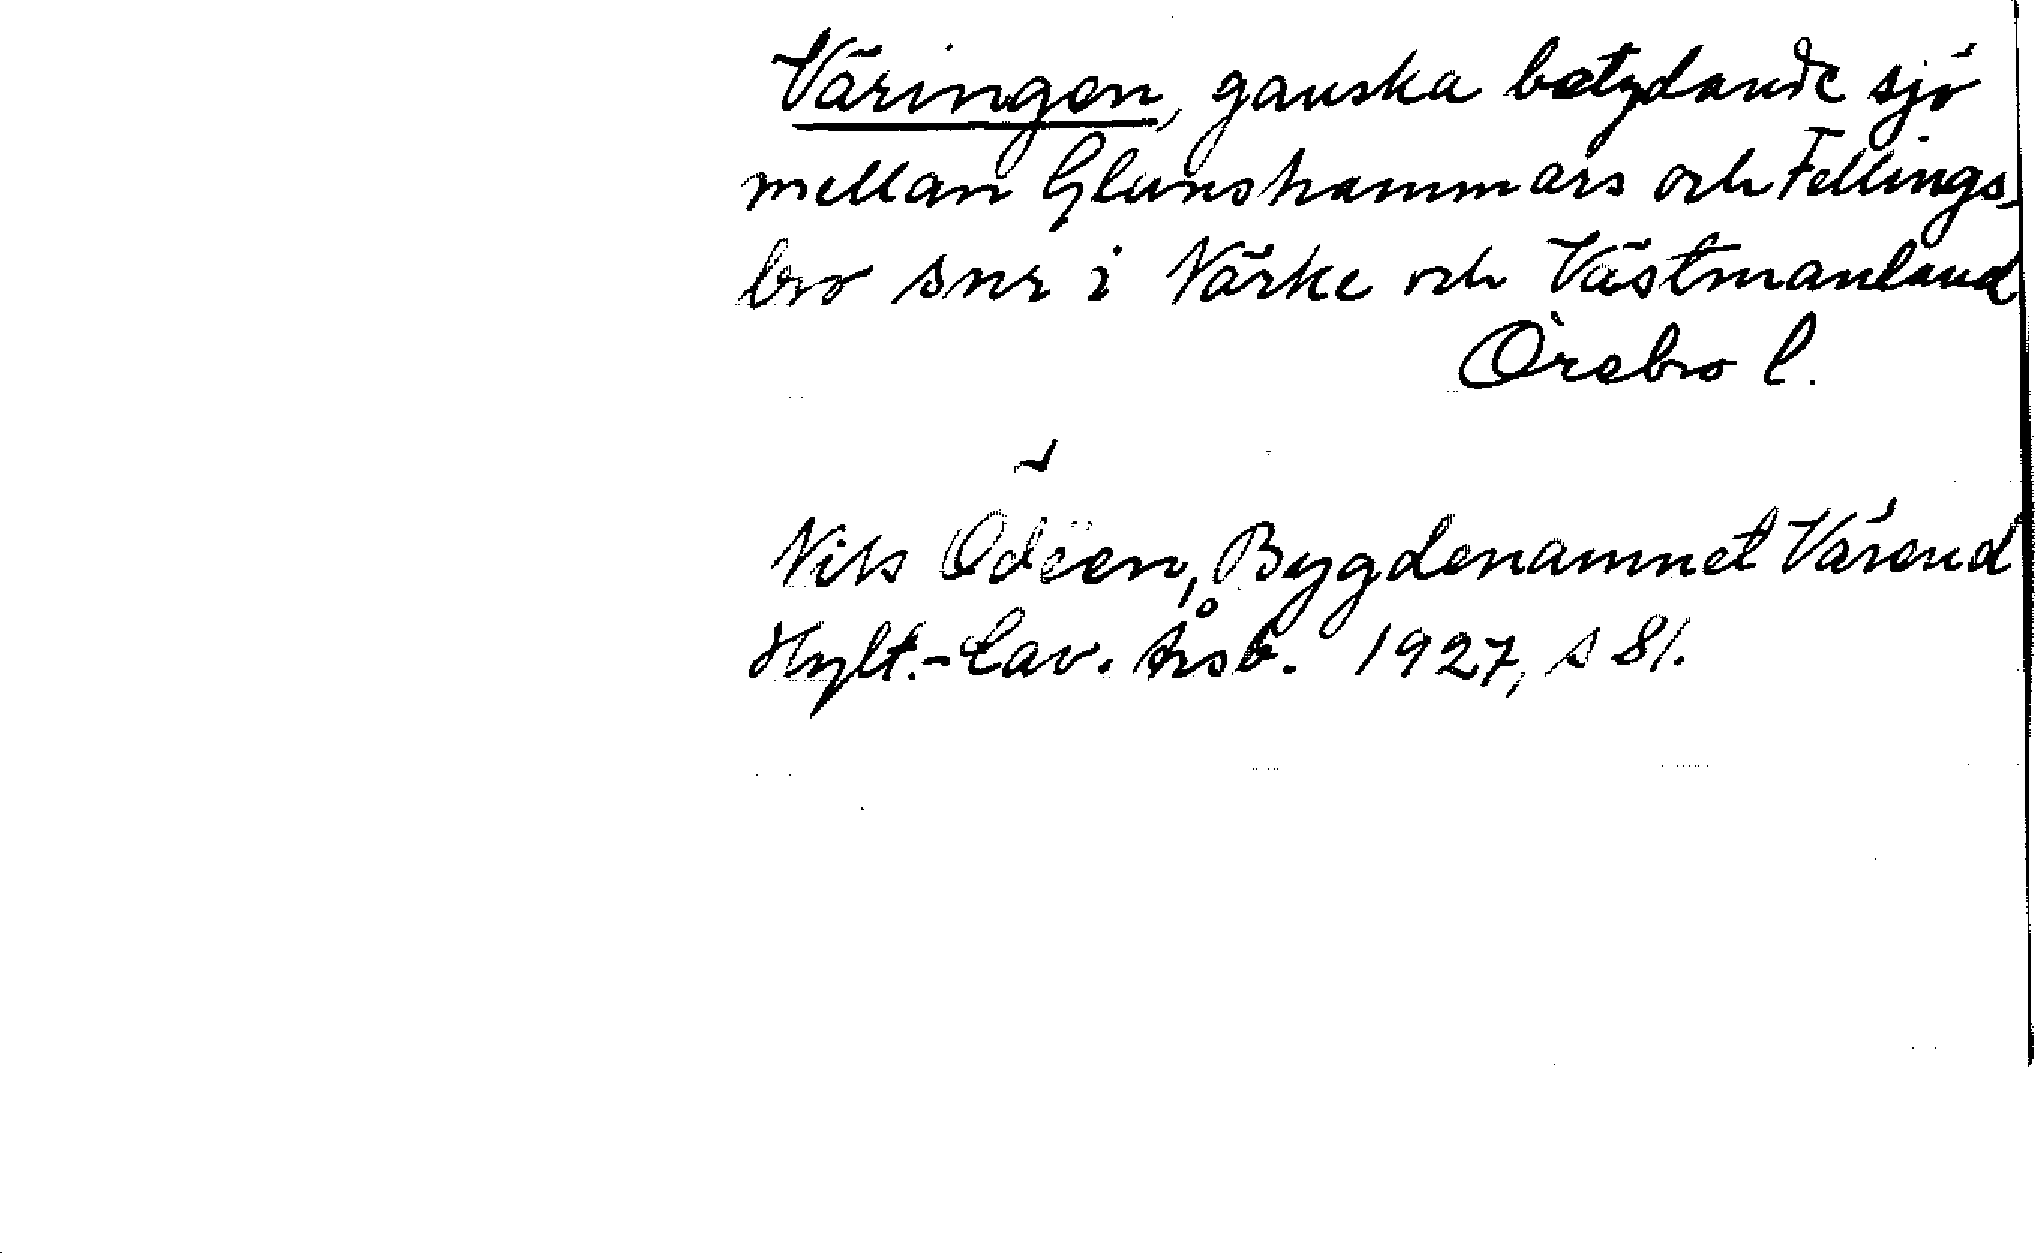 Väringen, ganska betydande sjö
mellan Glanshammars och Fellings-
bro snr i Närke och Västmanland
Örebro l.
Nils Ödeen, Bygdenamnet Värend
Hylt.-Cav. Årsb. 1927, s 81.